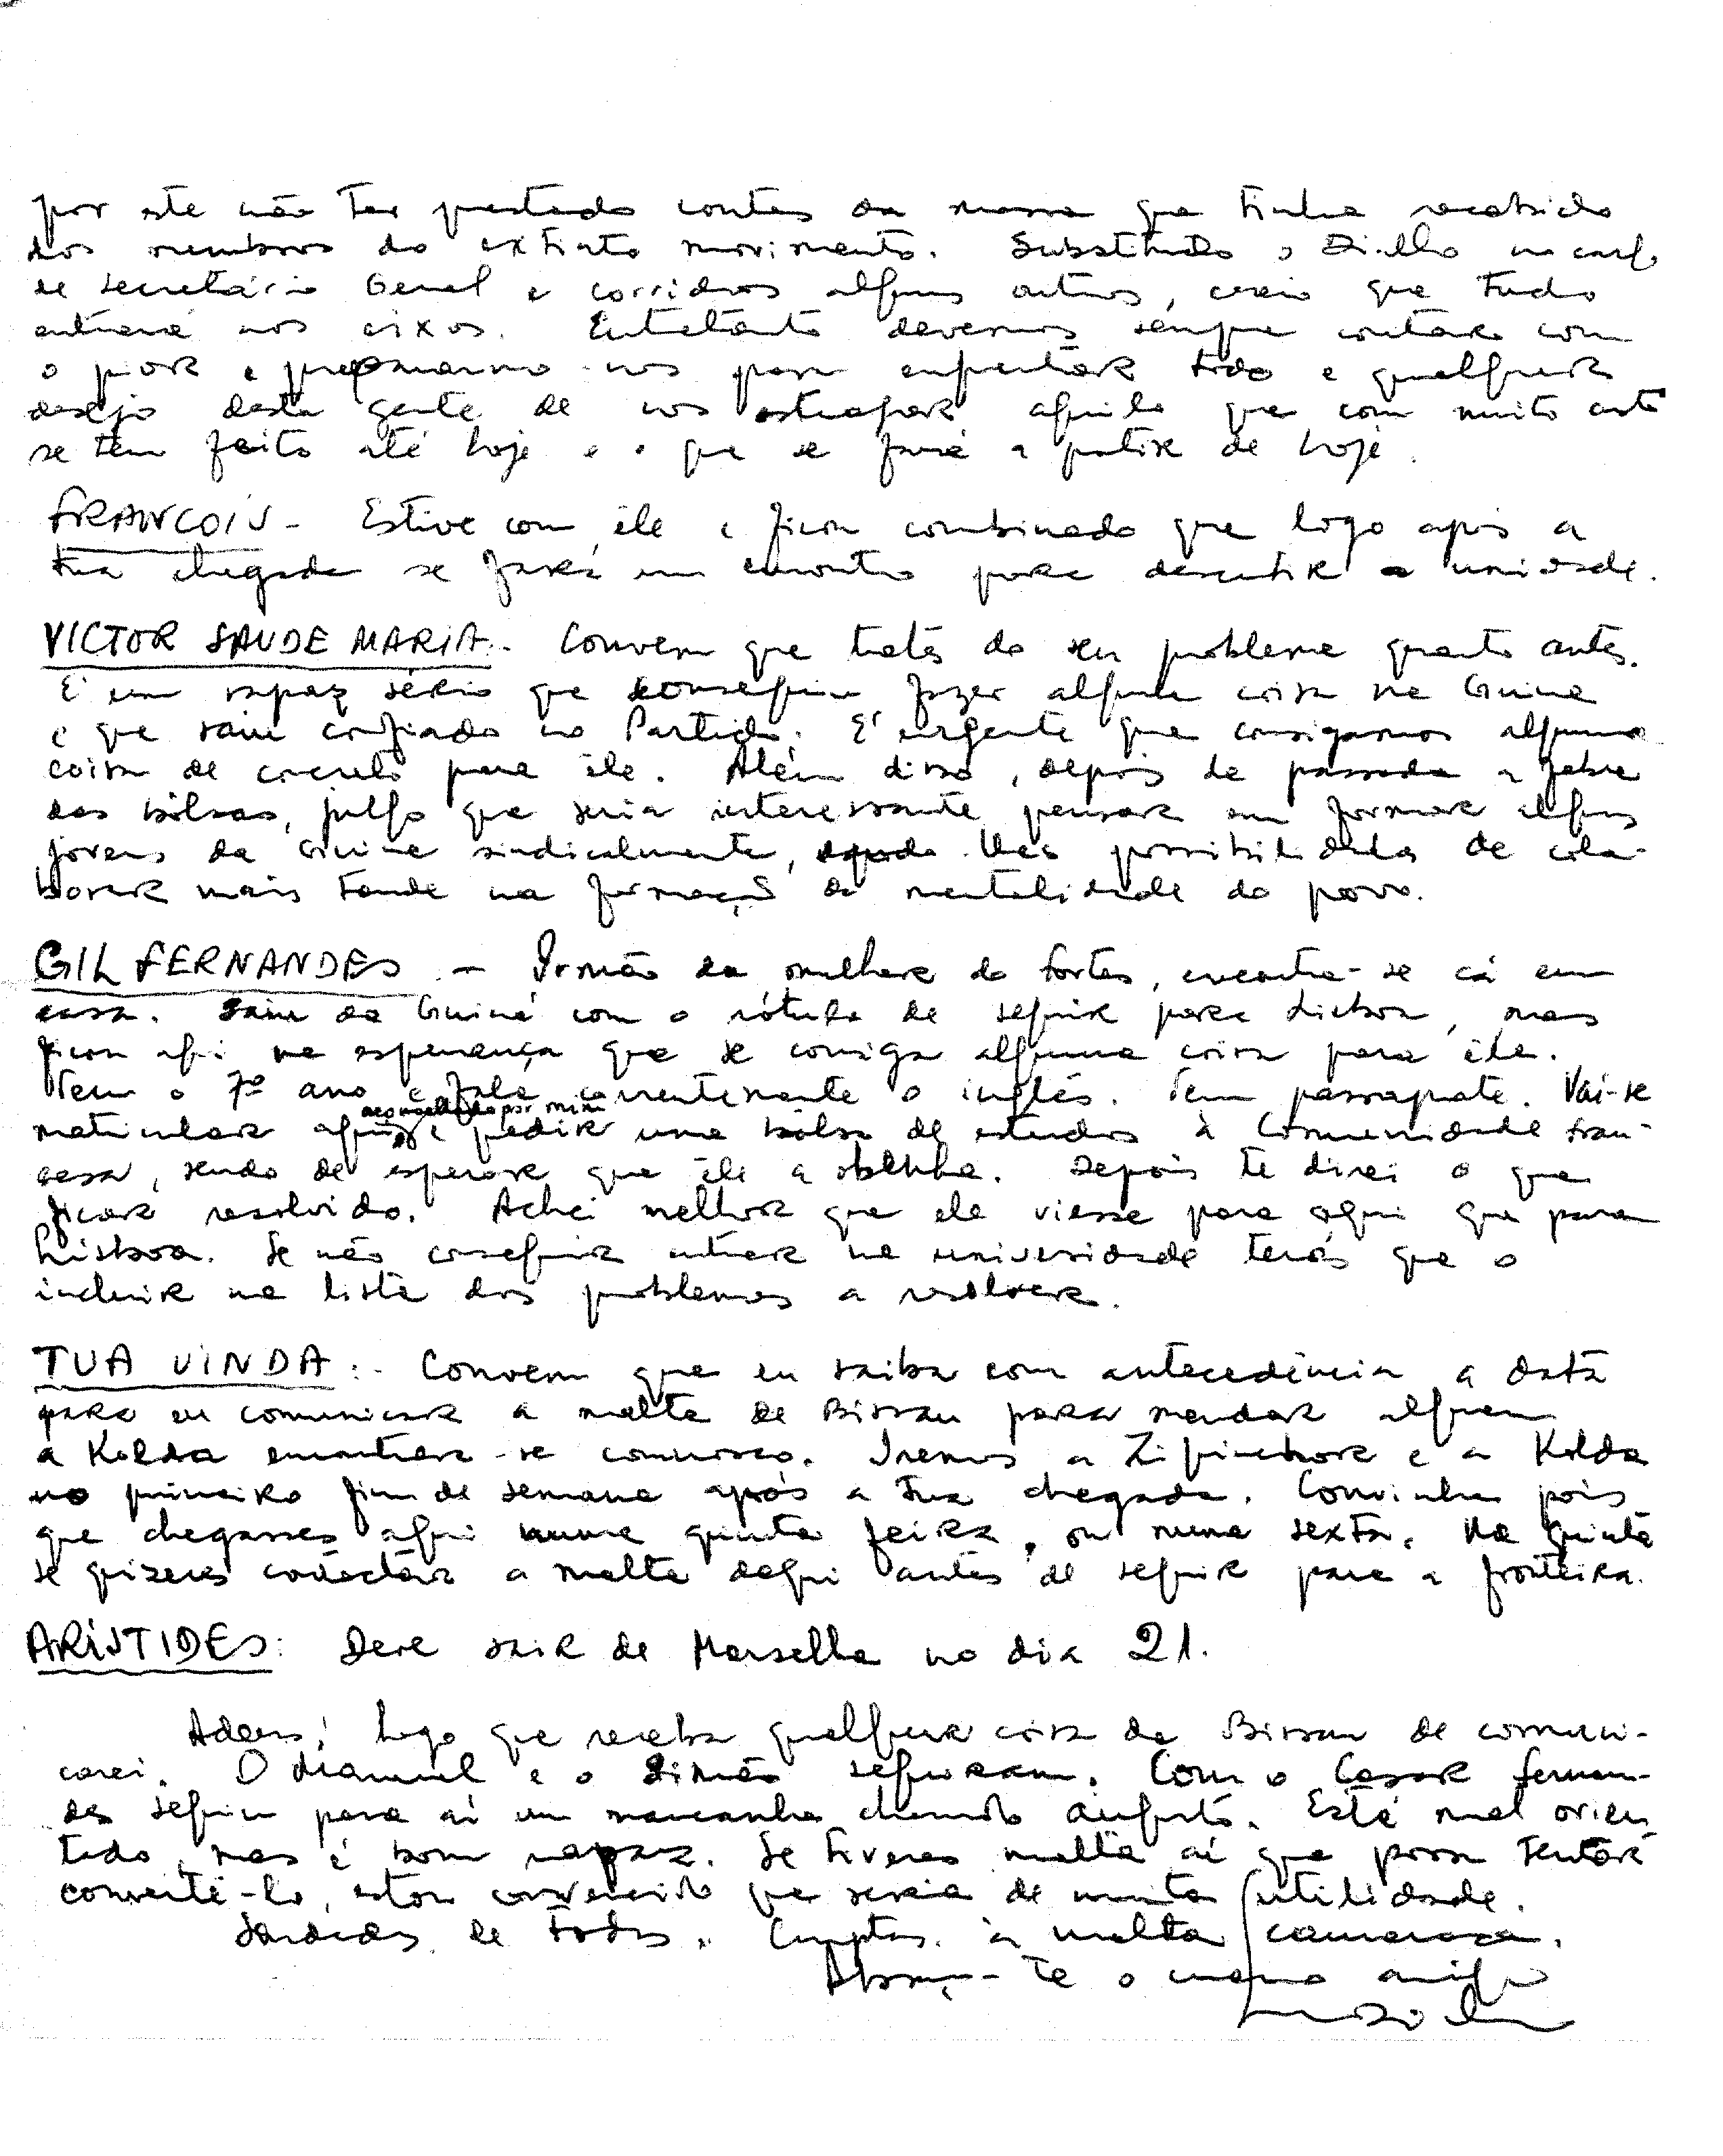 por este não ter prestado contas da massa que tinha recebido
dos membros do extinto movimento. Substituido o Diallo no cargo
de secretário Geral e corridos alguns outros, creio que tudo
entrará nos eixos. Entretanto devemos sempre contar com
o pior e prepararmo-nos para enfrentar todo e qualquer
desejo desta gente de nos estragar aquilo que com muito custo
se tem feito até hoje e o que se fará a partir de hoje.
FRANCOIS - Estive com êle e ficou combinado que logo após a
tua chegada se fará um encontro para descutir a unidade.
VICTOR SAUDE MARIA:- Convem que trates do seu problema quanto antes.
É um rapaz sério que conseguiu fazer alguma coisa na Guiné
e que saiu confiado no Partido. É urgente que consigamos alguma
coisa de concreto para êle. Além disso, depois de passada a febre
das bôlsas, julgo que seria interessante pensar em formar alguns
jovens da Guiné sindicalmente, dando-lhes possibilidades de cola-
borar mais tarde na formação da mentalidade do povo.
GIL FERNANDES - Irmão da mulher do Fortes, encontra-se cá em
casa. Saiu da Guiné com o rótulo de seguir para Lisboa, mas
ficou aqui na esperança que se consiga alguma coisa para êle.
Tem o 7º ano e fala correntemente o inglês. Tem passaporte. Vai-se
aconselhado por mim
matricular aqui e pedir uma bolsa de estudos à Comunidade fran-
cesa, sendo de esperar que êle a obtenha. Depois te direi o que
ficar resolvido. Achei melhor que ele viesse para aqui que para
Lisboa. Se não conseguir entrar na universidade terás que o
incluir na lista dos problemas a resolver.
TUA VINDA:- Convem que eu saiba com antecedência a data
para eu comunicar a malta de Bissau para mandar alguem
a Kolda encontrar-se connosco. Iremos a Ziguinchor e a Kolda
no primeiro fim de semana após a tua chegada. Convinha pois
que chegasses aqui numa quinta feira, ou numa sexta. Na quinta
se quizeres contactar a malta daqui antes de seguir para a fronteira.
ARISTIDES: Deve sair de Marselha no dia 21.
Adeus! Logo que receba qualquer coisa de Bissau de comuni-
carei. O Luciano e o Simão seguiram. Com o Cesar Fernan-
des seguiu para aí um mancanha chamado Augusto. Está mal orien
tado, mas é bom rapaz. Se tiveres malta aí que possa tentar
convertê-lo, estou convencido que seria de muita utilidade.
Saudades de todos. Cumptos. à malta camarada.
Abraça-te o mano amigo